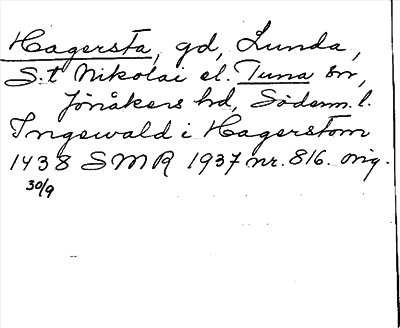 Hagersta, gd, Lunda,
S:t Nikolai el. Tuna sn,
Jönåkers hd, Söderm. l.
Ingewald i Hagerstom
1438 SMR 1937 nr. 816. orig.
30/9